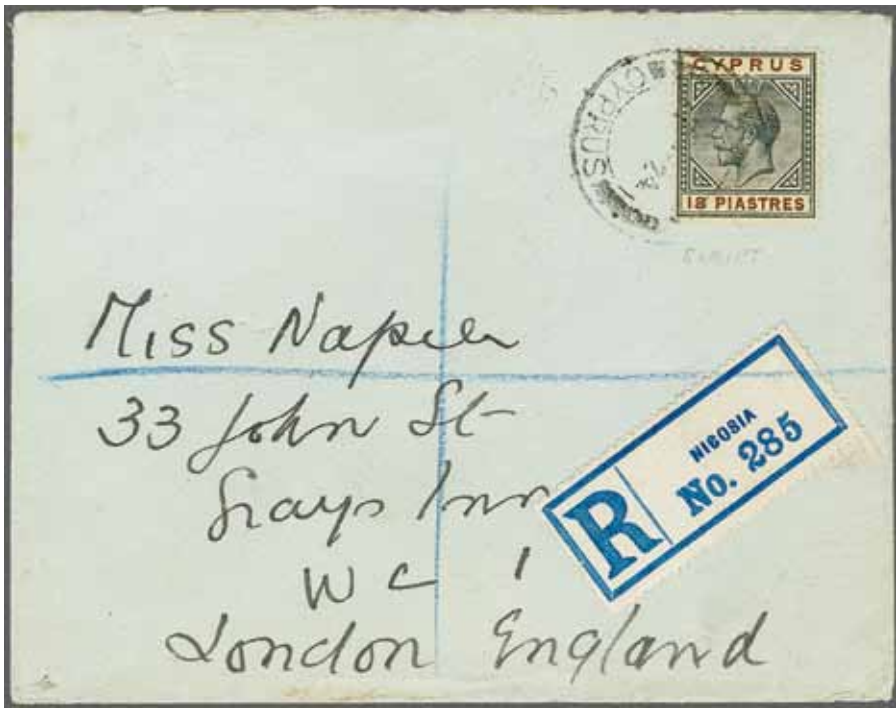 CYPRUS
CYPRUS
18 PIASTRES
SCRIPT
Miss Napier
33 John St
Grays Inn
W C 1
London England
R
NICOSIA
No. 285